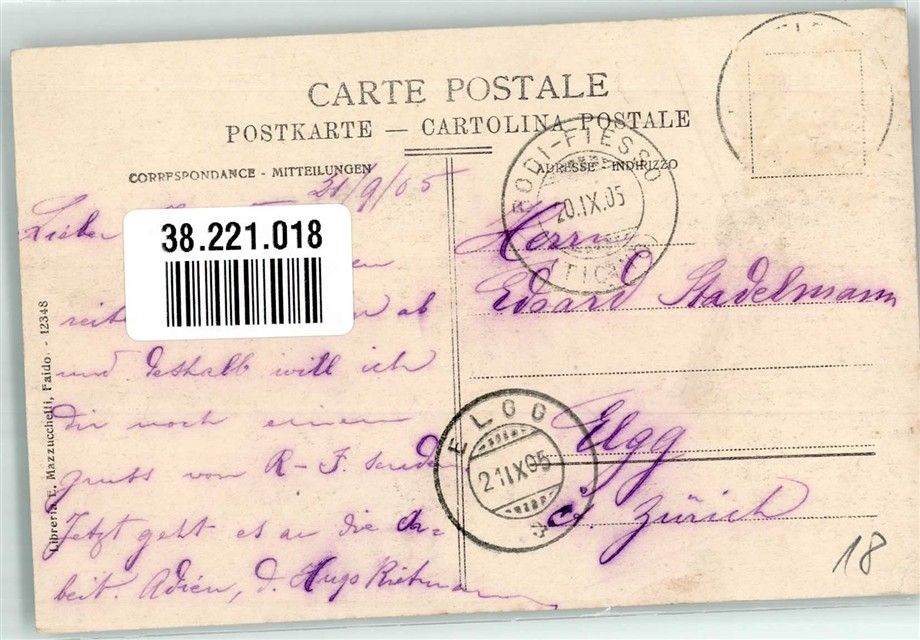 CARTE POSTALE
POSTKARTE — CARTOLINA POSTALE
CORRESPONDANCE - MITTEILUNGEN
ADRESSE - INDIRIZZO
RODI-FIESSO
20.IX.05
(TICINO)
21/9/05
Lieber
38.221.018
ab
und deshalb will ich
dir noch einen
gruss von R-F. senden
Jetzt geht es an die Ar-
beit. Adieu, d. Hugo Rietmann
Herrn
Edgard Stadelmann
Elgg
Ct. Zürich
ELGG
21.IX.05
Libreria E. Mazzucchelli, Faido. - 12348
18